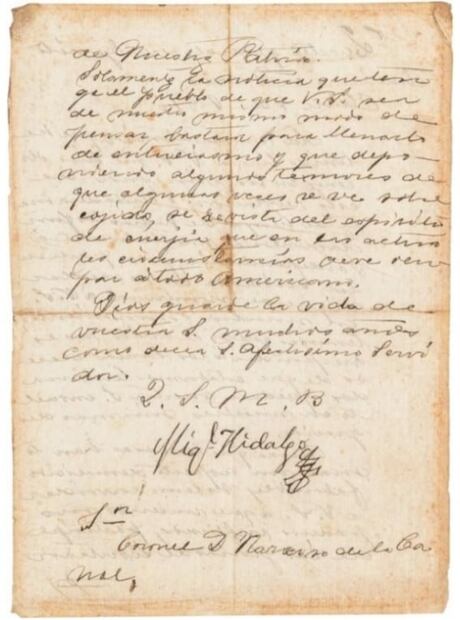 de Nuestra Patria.
Solamente la noticia que ten-
ga el pueblo de que V.S. sea
de nuestro mismo modo de
pensar, bastará para llenarlo
de entusiasmo y que depo-
niendo algunos temores de
que algunas veces se ve sobre
cojido, se revista del espíritu
de energía que en las actua
les circunstancias deve reu
par á todo Americano.
Dios guarde la vida de
vuestra S. muchos años
como decea S. Afectisimo Servi
dor.
Q. S. M. B
Migl. Hidalgo
Sor
Coronel D. Narciso de la Ca
nal,